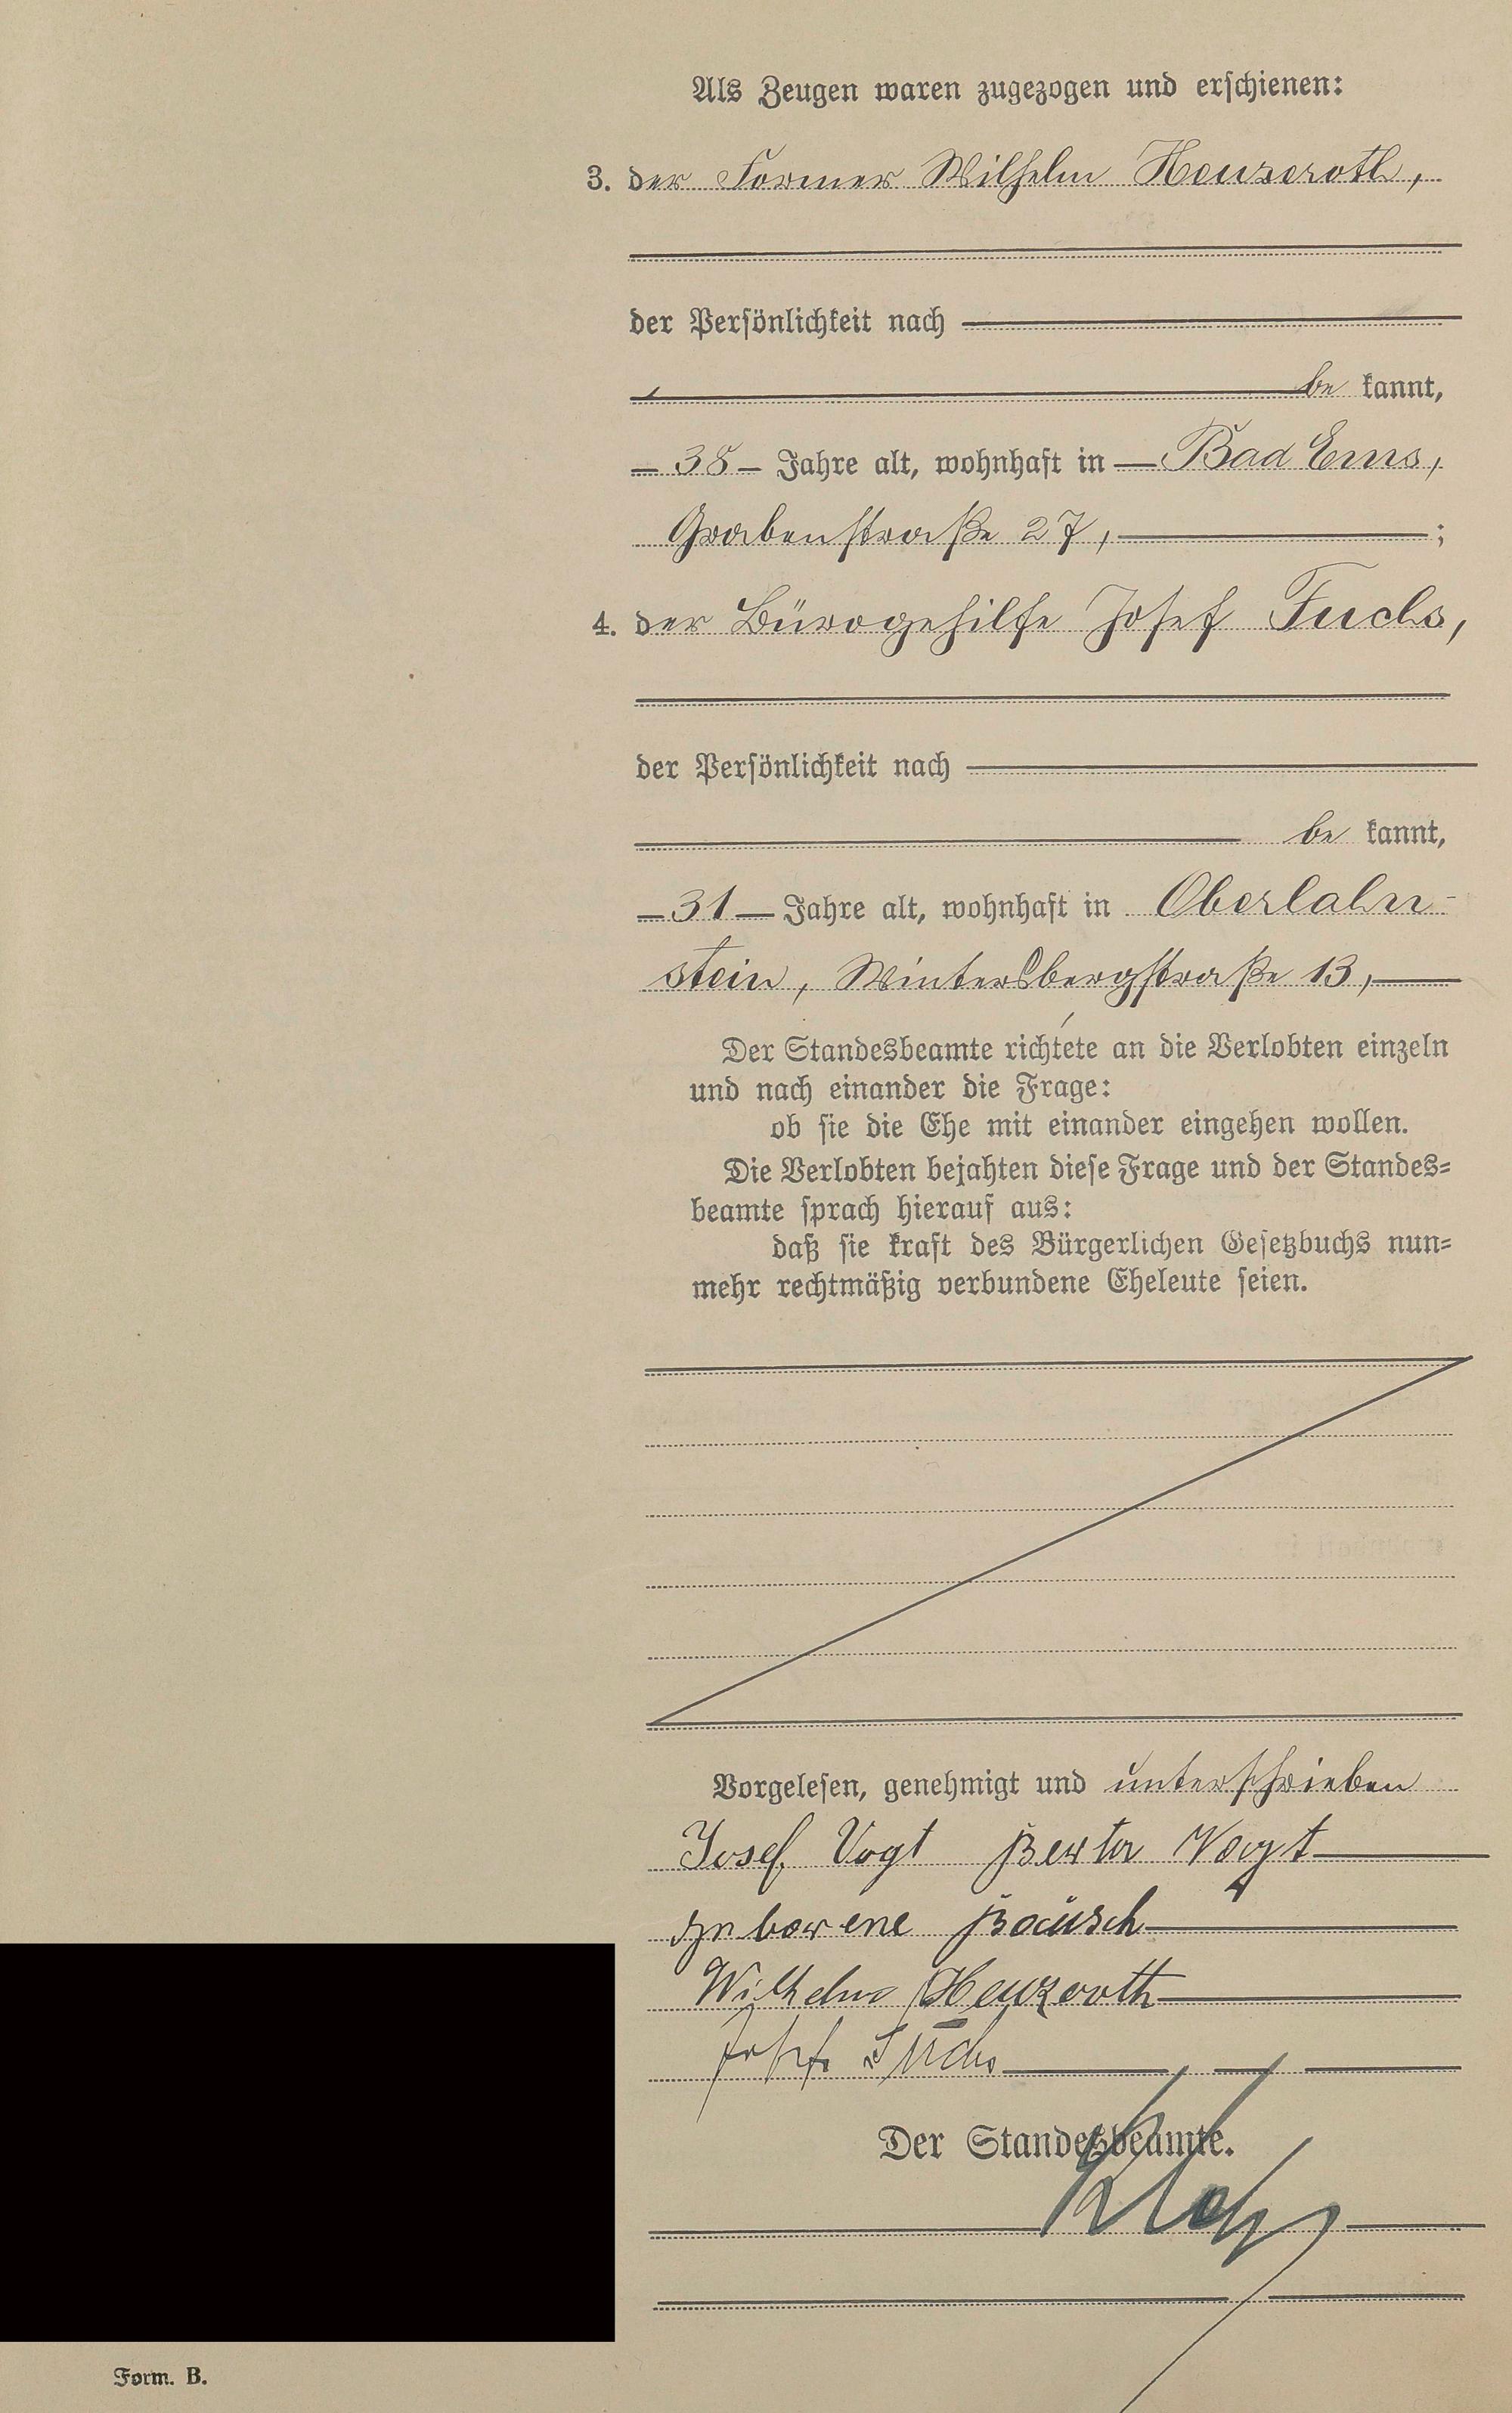 Als Zeugen waren zugezogen und erschienen:
3. der Former Wilhelm Heuzeroth,
der Persönlichkeit nach
be kannt,
– 38 – Jahre alt, wohnhaft in – Bad Ems,
Grabenstraße 27, ;
4. der Bürogehilfe Josef Fuchs,
der Persönlichkeit nach
be kannt,
– 31 – Jahre alt, wohnhaft in Oberlahn-
stein, Wintersbergstraße 13,
Der Standesbeamte richtete an die Verlobten einzeln
und nach einander die Frage:
ob sie die Ehe mit einander eingehen wollen.
Die Verlobten bejahten diese Frage und der Standes-
beamte sprach hierauf aus:
daß sie kraft des Bürgerlichen Gesetzbuchs nun-
mehr rechtmäßig verbundene Eheleute seien.
Vorgelesen, genehmigt und unterschrieben
Josef Vogt Berta Vogt
geborene Bausch
Wilhelm Heuzeroth
Josef Fuchs
Der Standesbeamte.
Form. B.